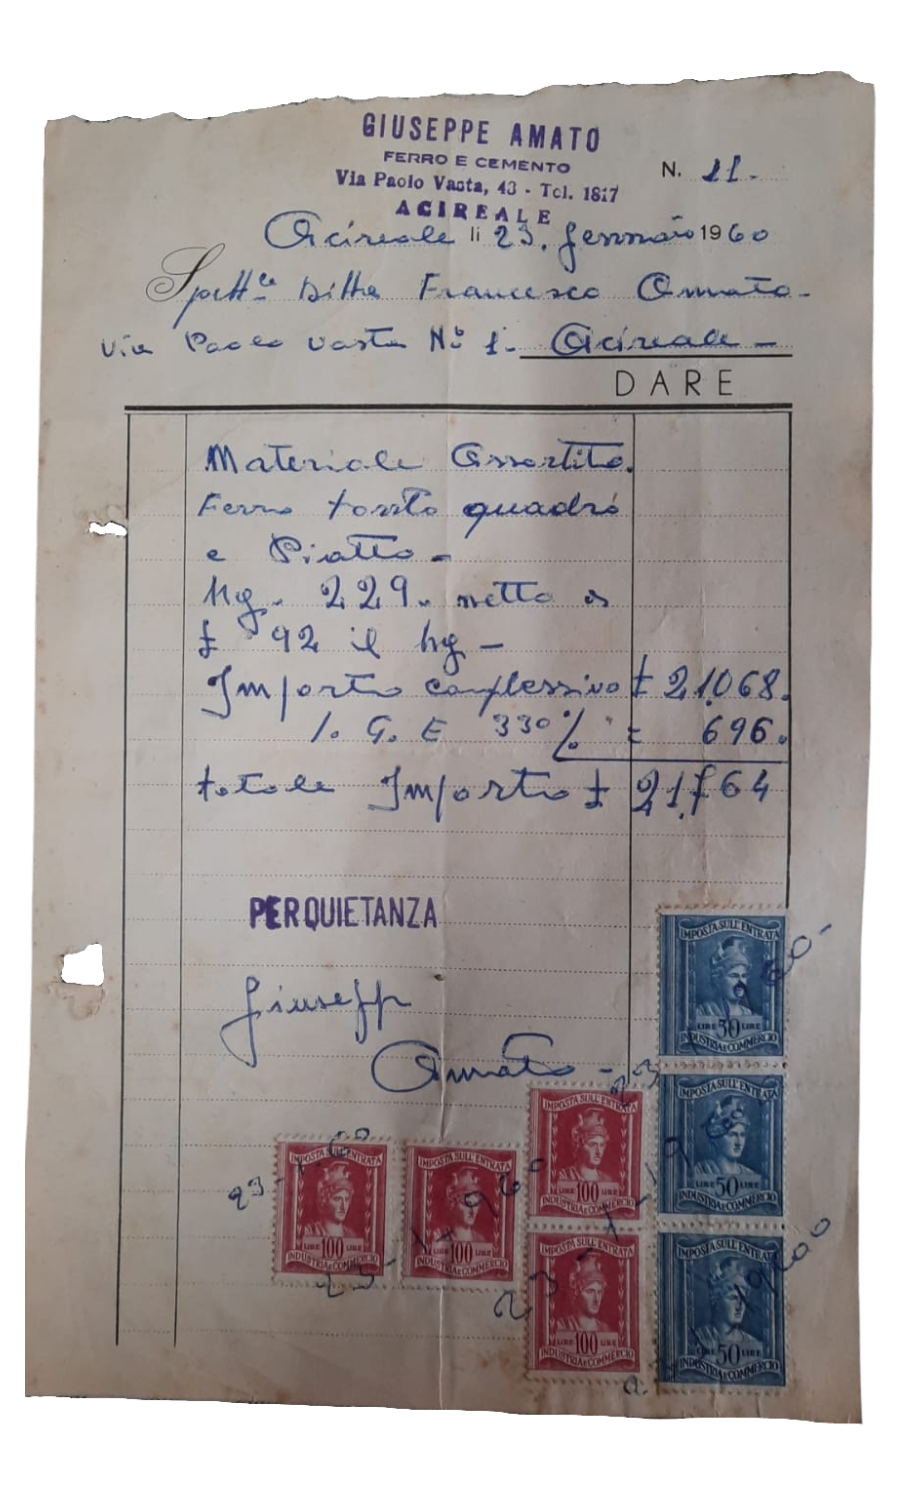 GIUSEPPE AMATO
FERRO E CEMENTO
Via Paolo Vasta, 43 - Tel. 1817
ACIREALE
N. 11.
Acireale li 23. Gennaio 1960
Spett.le Ditta Francesco Amato -
Via Paolo Vasta N° 1. Acireale -
DARE
Materiale Assortito.
Ferro tondo quadro
e Piatto -
Kg. 229. netto a
£ 92 il kg -
Importo complessivo £ 21.068.
I. G. E 330% = 696.
totale Importo £ 21.764
PER QUIETANZA
Giuseppe
Amato -
IMPOSTA SULL'ENTRATA
LIRE 50 LIRE
INDUSTRIA E COMMERCIO
IMPOSTA SULL'ENTRATA
LIRE 50 LIRE
INDUSTRIA E COMMERCIO
IMPOSTA SULL'ENTRATA
LIRE 50 LIRE
INDUSTRIA E COMMERCIO
IMPOSTA SULL'ENTRATA
LIRE 100 LIRE
INDUSTRIA E COMMERCIO
IMPOSTA SULL'ENTRATA
LIRE 100 LIRE
INDUSTRIA E COMMERCIO
IMPOSTA SULL'ENTRATA
LIRE 100 LIRE
INDUSTRIA E COMMERCIO
IMPOSTA SULL'ENTRATA
LIRE 100 LIRE
INDUSTRIA E COMMERCIO
23-1-60
23-1-1960
23-1-1960